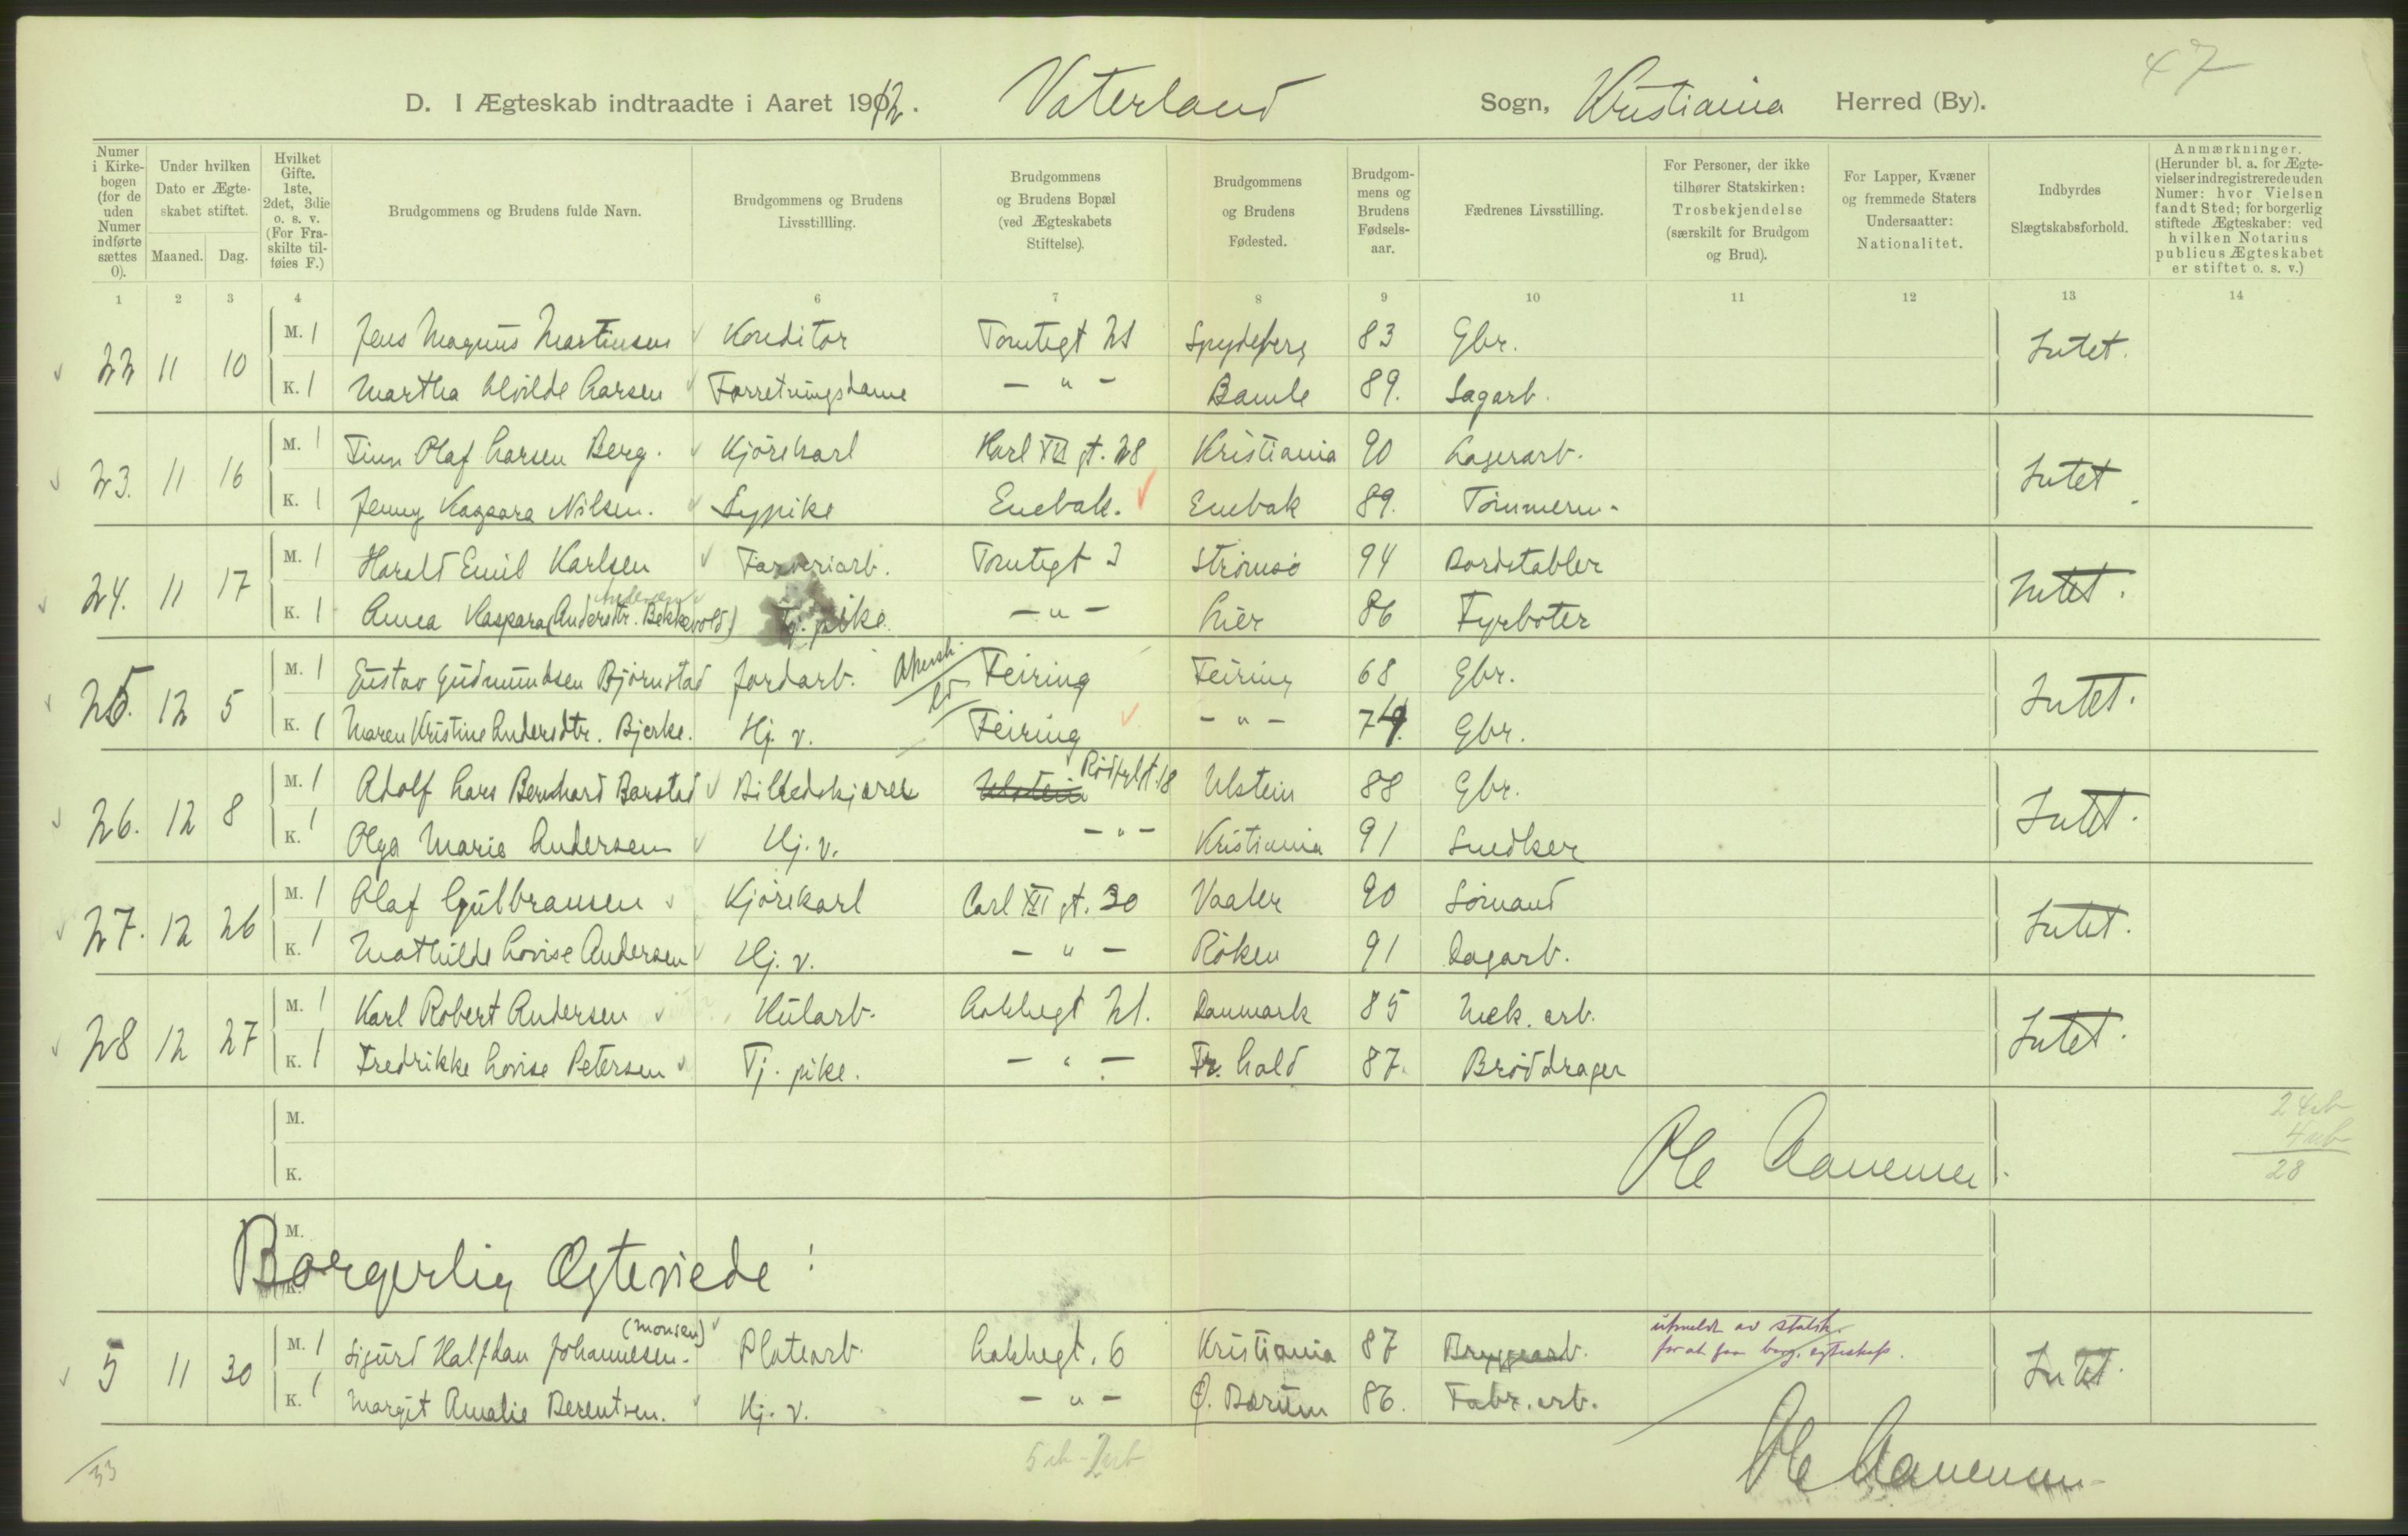 47
D. I Ægteskab indtraadte i Aaret 1912. Vaterland Sogn, Kristiania Herred (By).
Numer i Kirkebogen (for de uden Numer indførte sættes 0). | Under hvilken Dato er Ægteskabet stiftet. Maaned. Dag. | Hvilket Gifte. 1ste, 2det, 3die o. s. v. (For Fraskilte tilføies F.) | Brudgommens og Brudens fulde Navn. | Brudgommens og Brudens Livsstilling. | Brudgommens og Brudens Bopæl (ved Ægteskabets Stiftelse). | Brudgommens og Brudens Fødested. | Brudgommens og Brudens Fødselsaar. | Fædrenes Livsstilling. | For Personer, der ikke tilhører Statskirken: Trosbekjendelse (særskilt for Brudgom og Brud). | For Lapper, Kvæner og fremmede Staters Undersaatter: Nationalitet. | Indbyrdes Slægtskabsforhold. | Anmærkninger. (Herunder bl. a. for Ægtevielser indregistrerede uden Numer: hvor Vielsen fandt Sted; for borgerlig stiftede Ægteskaber: ved hvilken Notarius publicus Ægteskabet er stiftet o. s. v.)
1 2 3 4 6 7 8 9 10 11 12 13 14
22 11 10 M. 1 Jens Magnus Martinsen Konditor Tomtegt 21 Spydeberg 83 Gbr. Intet.
K. 1 Martha Alvilde Larsen Forretningsdame - " - Bamle 89. Sagarb.
23. 11 16 M. 1 Finn Olaf Larsen Berg. Kjörekarl Karl XII gt. 28 Kristiania 90 Lagerarb. Intet.
K. 1 Jenny Kaspara Nilsen. Sypike Enebak. Enebak 89. Tömmerm.
24. 11 17 M. 1 Harald Emil Karlsen Farveriarb. Tomtegt 3 Strömsö 94 Bordstabler Intet.
Andersen
K. 1 Anna Kaspara (Andersdtr. Bekkevold) Tj. pike. - " - Lier 86 Fyrböter
25. 12 5 M. 1 Gustav Gudmundsen Björnstad Jordarb. Akersh. Feiring Feiring 68 Gbr. Intet.
K. 1 Maren Kristine Andersdtr. Bjerke. Hj. v. Feiring - " - 74 Gbr.
26. 12 8 M. 1 Adolf Lars Bernhard Barstad Billedskjærer Ulstein Rödfylt. 18 Ulstein 88 Gbr. Intet.
K. 1 Olga Marie Andersen Hj. v. - " - Kristiania 91 Snedker
27. 12 26 M. 1 Olaf Gulbransen Kjörekarl Carl XII gt. 30 Vaaler 90 Sömand Intet.
K. 1 Mathilde Lovise Andersen Hj. v. - " - Röken 91 Dagarb.
28 12 27 M. 1 Karl Robert Andersen Kularb. Lakkegt 21. Danmark 85 Mek. arb. Intet.
K. 1 Fredrikke Lovise Petersen Tj. pike. - " - Fr. hald 87. Bröddrager
M.
K.
Ole Aanensen.
28
M.
K.
Borgerlig Ægteviede:
5 11 30 M. 1 Sigurd Halfdan Johannesen. (Monsen) Platearb. Lakkegt. 6 Kristiania 87 Bryggearb. utmeldt av statsk. for at faa borg. egteskap. Intet.
K. 1 Margit Amalie Berentsen. Hj. v. - " - Ø. Bærum 86. Fabr. arb.
Ole Aanensen
33